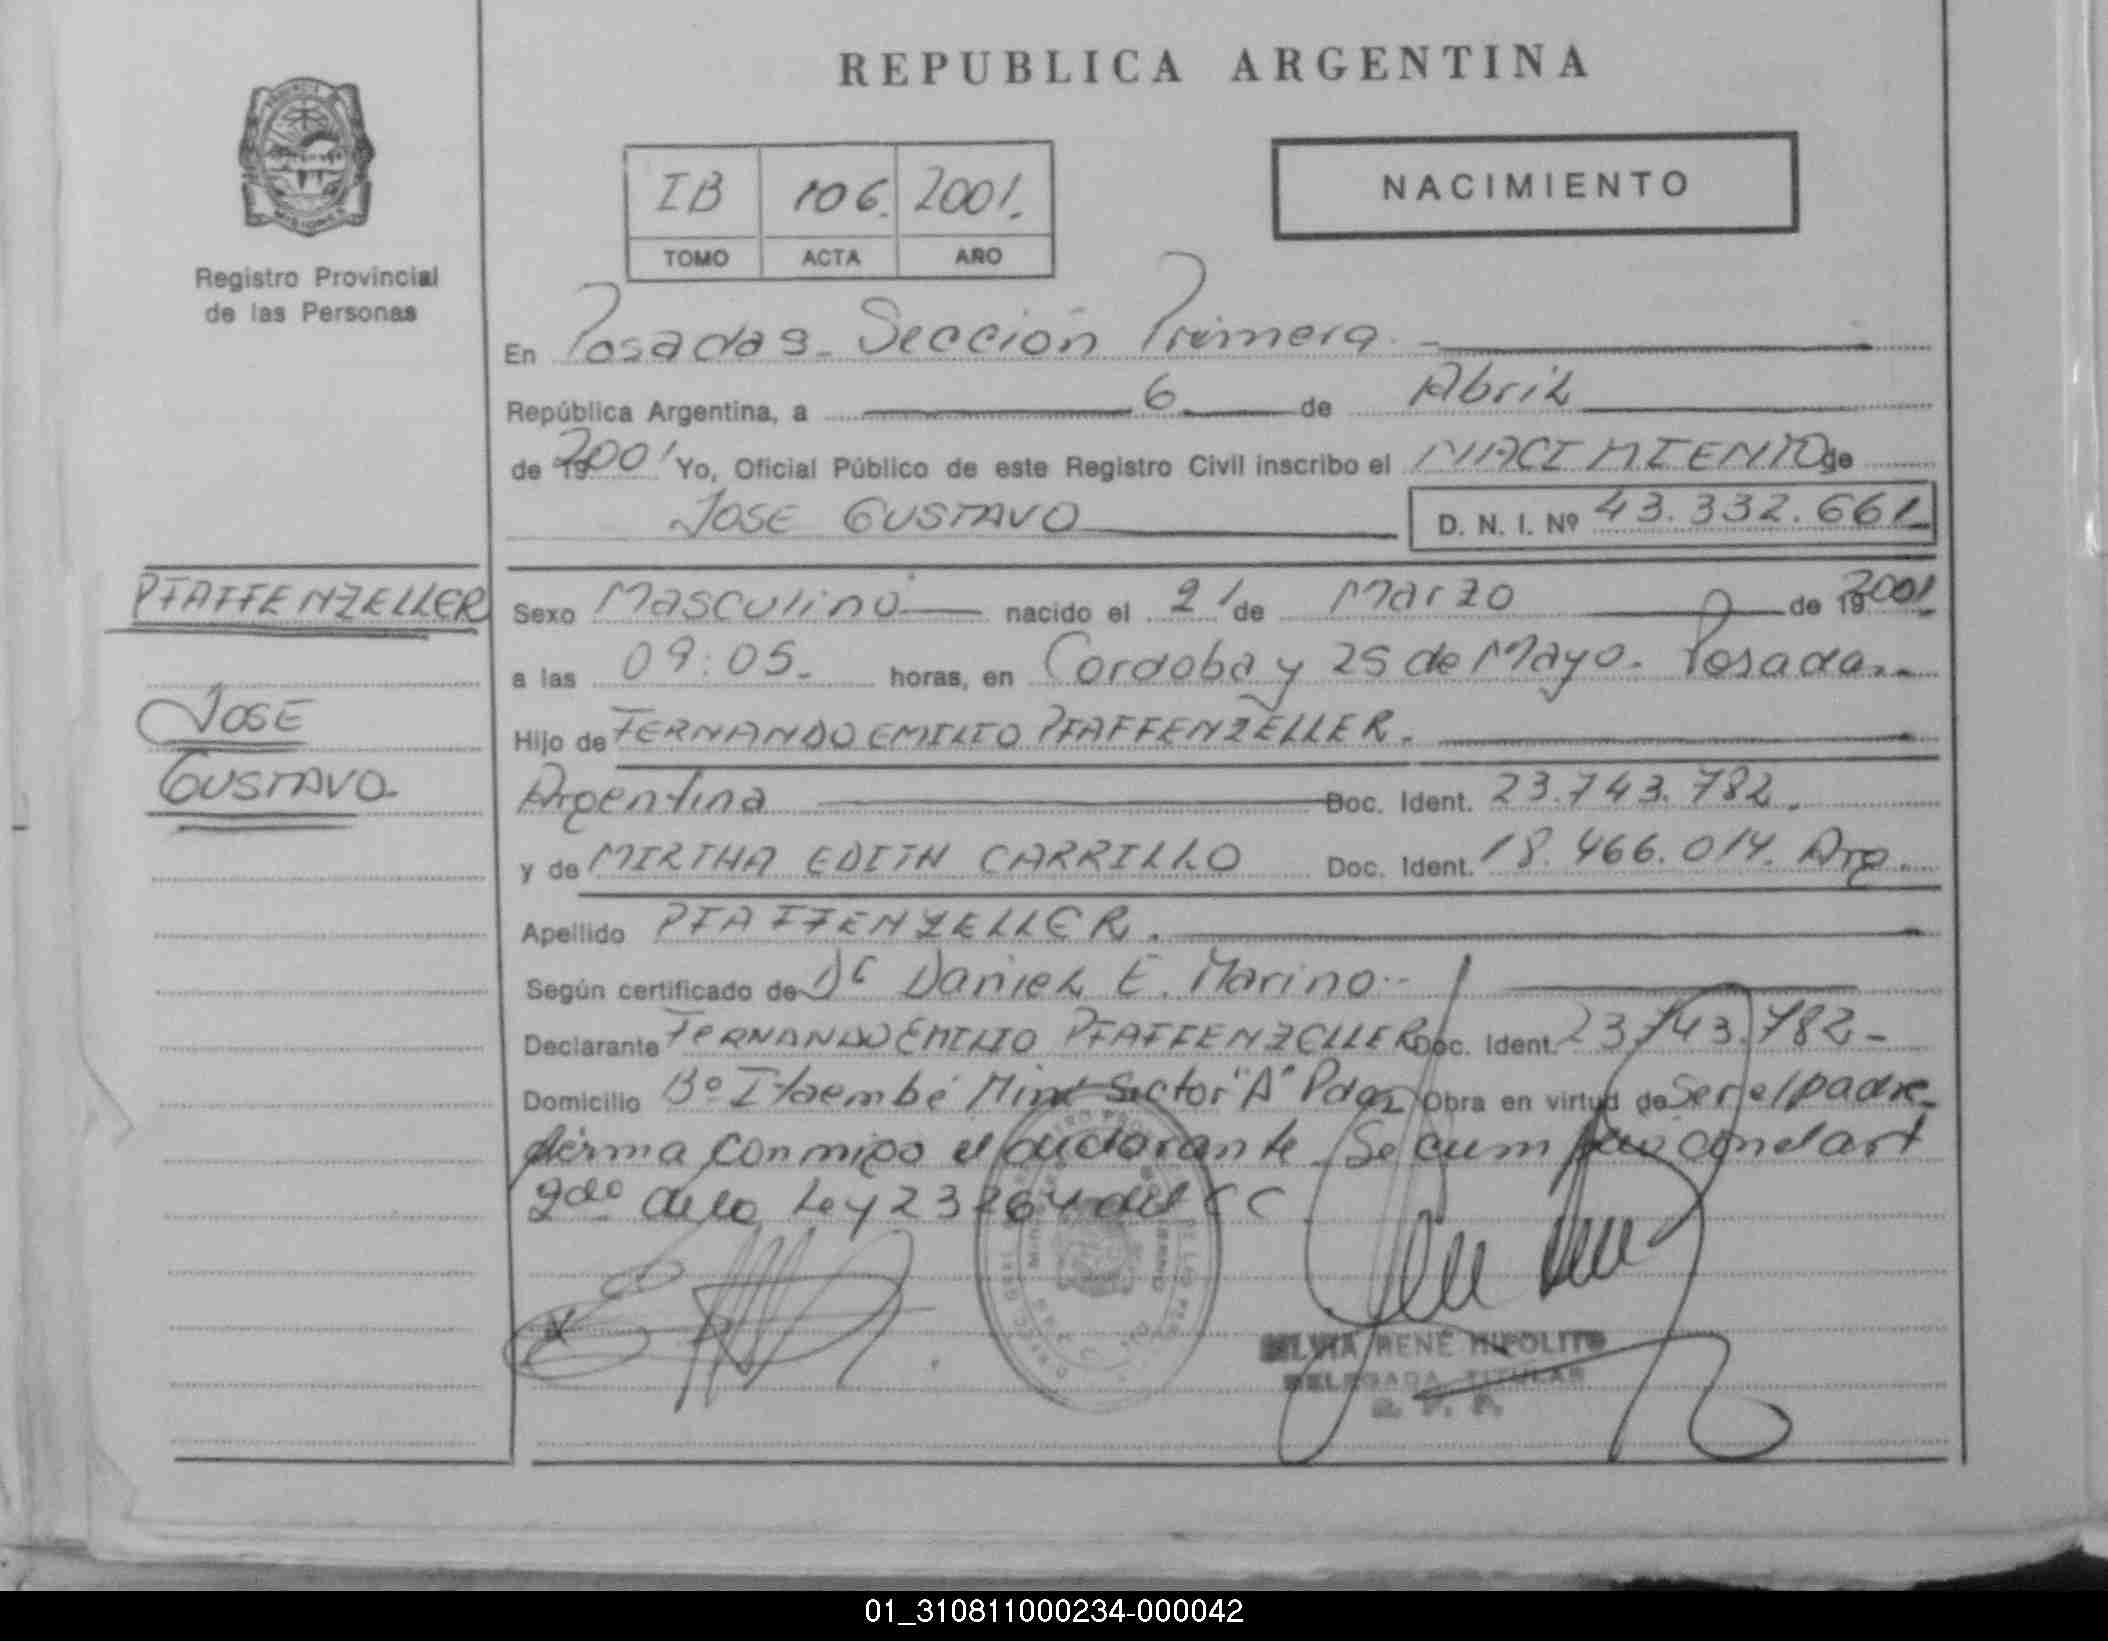 REPUBLICA ARGENTINA
IB 106. 2001.
TOMO ACTA AÑO
NACIMIENTO
Registro Provincial
de las Personas
En Posadas. Sección Primera.
República Argentina, a 6 de Abril
de 19 2001 Yo, Oficial Público de este Registro Civil inscribo el NACIMIENTO de
JOSE GUSTAVO D. N. I. Nº 43.332.661
PFAFFENZELLER
JOSE
GUSTAVO
Sexo Masculino nacido el 21 de Marzo de 19 2001.
a las 09:05. horas, en Cordoba y 25 de Mayo. Posadas.
Hijo de FERNANDO EMILIO PFAFFENZELLER.
Argentina Doc. Ident. 23.743.782.
y de MIRTHA EDITH CARRILLO Doc. Ident. 18.466.014. Arg.
Apellido PFAFFENZELLER.
Según certificado de Dr Daniel E. Marino
Declarante FERNANDO EMILIO PFAFFENZELLER Doc. Ident. 23.743.782-
Domicilio Bº Itaembé Miní Sector "A" Pdas Obra en virtud de Ser el padre
firma conmigo el declarante. Se con el art
2do de la Ley 23264 del CC
SILVIA RENE HIPOLITO
DELEGADA TITULAR
01_310811000234-000042